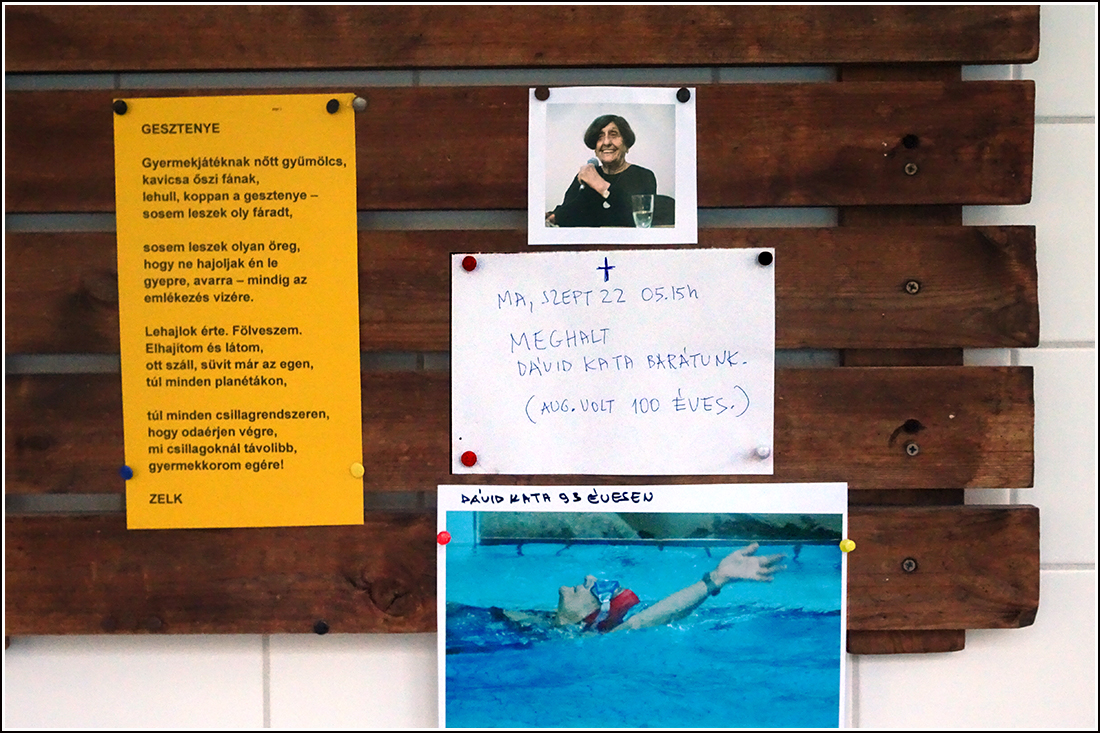 GESZTENYE
Gyermekjátéknak nőtt gyümölcs,
kavicsa őszi fának,
lehull, koppan a gesztenye –
sosem leszek oly fáradt,
sosem leszek olyan öreg,
hogy ne hajoljak én le
gyepre, avarra – mindig az
emlékezés vizére.
Lehajlok érte. Fölveszem.
Elhajítom és látom,
ott száll, süvít már az egen,
túl minden planétákon,
túl minden csillagrendszeren,
hogy odaérjen végre,
mi csillagoknál távolibb,
gyermekkorom egére!
ZELK
MA, SZEPT 22 05.15h
MEGHALT
DÁVID KATA BARÁTUNK.
(AUG. VOLT 100 ÉVES.)
DÁVID KATA 93 ÉVESEN